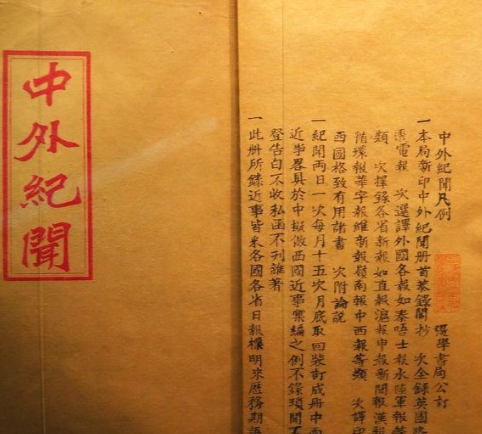 中外紀聞
中外紀聞凡例
強學書局公訂
一本局新印中外紀聞册首恭錄閣抄 次全錄英國路
透電報 次選譯外國各報如泰晤士報水陸軍報等
類 次擇錄各省新報如直報滬報申報新聞報漢報
循環報華字報維新報嶺南報中西報等類 次譯印
西國格致有用諸書 次附論說
一紀聞兩日一次每月十五次月底取回裝訂成册中西
近事畧具於中擬倣西國近事彙編之例不錄瑣聞不
登告白不收私函不刊雜著
一此册所錄近事皆采各國各省日報標明來歷務期語